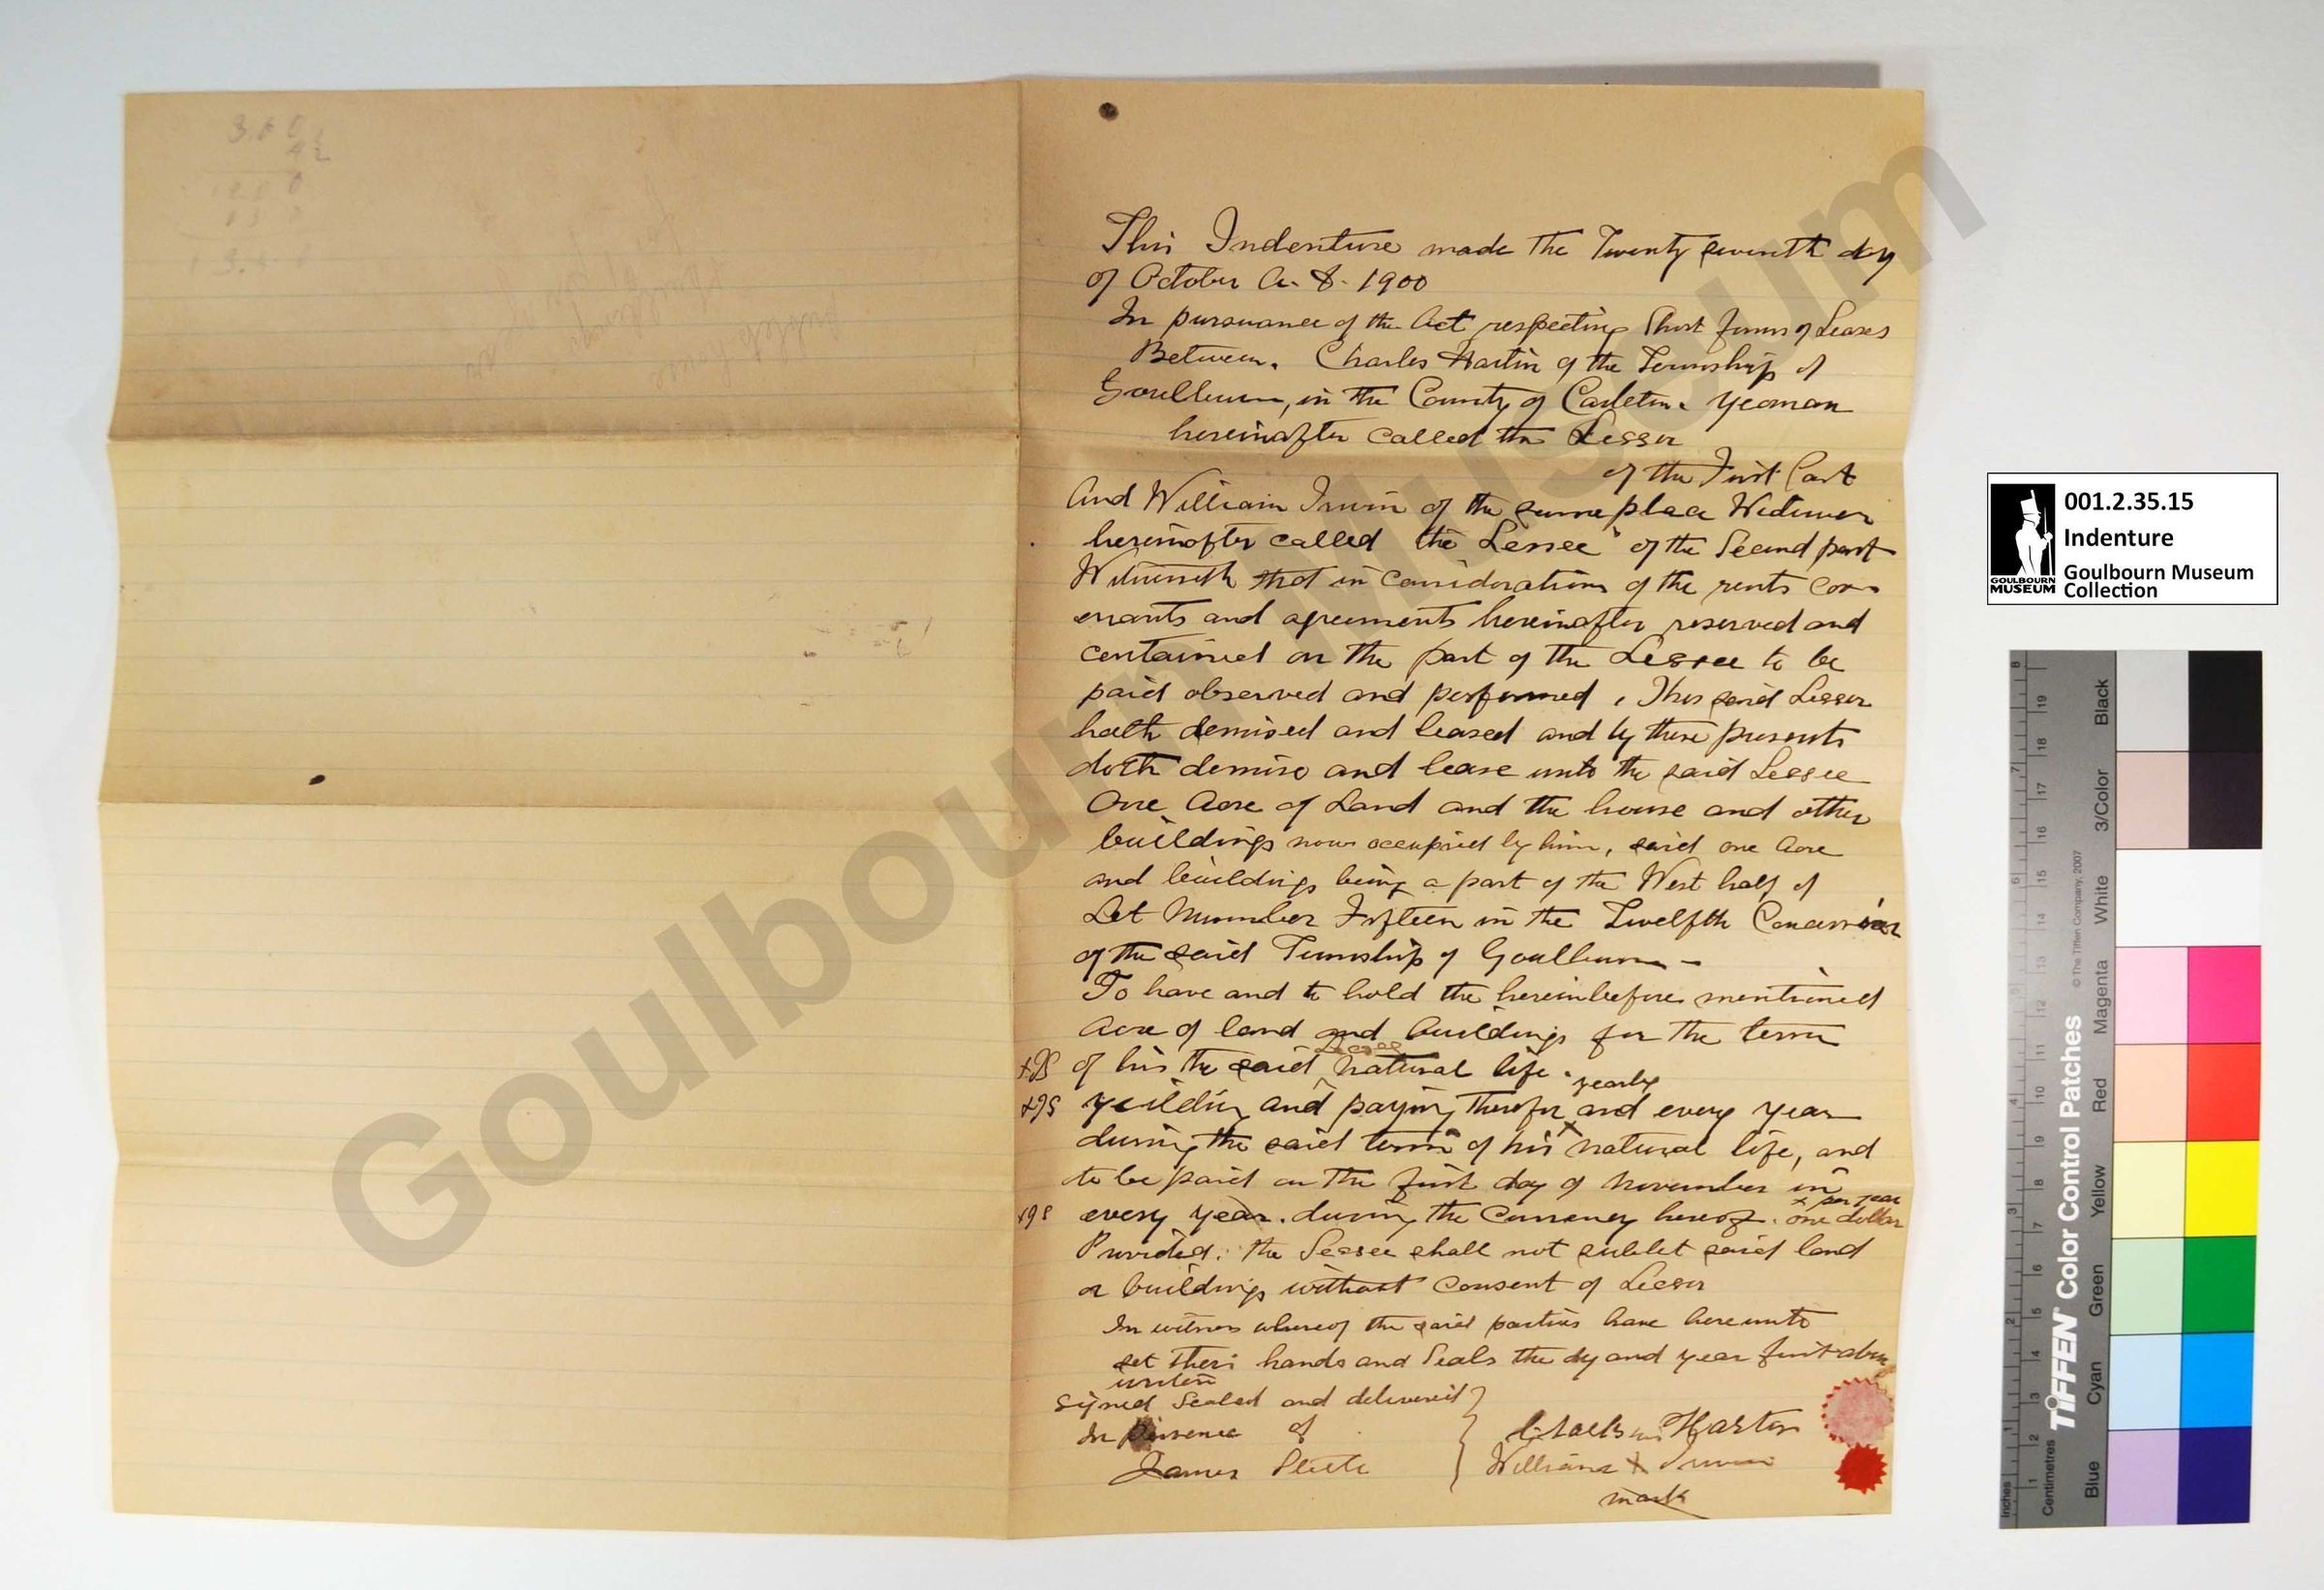 3.60
42
This Indenture made the Twenty seventh day
of October A. D. 1900
In pursuance of the Act respecting Short forms of Leases
Between. Charles Hartin of the Township of
Goulburn, in the County of Carleton. Yeoman
hereinafter called the Lessor
of the First Part
And William Irwin of the same place Widower
hereinafter called "the Lessee" of the Second part
Witnesseth that in considerations of the rents cov-
enants and agreements hereinafter reserved and
contained on the part of the Lessee to be
paid observed and performed, This said Lessor
hath demised and leased and by these presents
doth demise and lease unto the said Lessee
One Acre of Land and the house and other
buildings now occupied by him, said one Acre
and buildings being a part of the West half of
Lot Number Fifteen in the Twelfth Concession
of the said Township of Goulburn -
To have and to hold the hereinbefore mentioned
Acre of land and buildings for the term
Lessee
of his the said natural life.
yearly
yeilding and paying therefor and every year
during the said term of his x natural life, and
to be paid on the first day of November in
x per year
every year. during the Currency hereof. one dollar
Provided. the Lessee shall not sublet said land
or buildings without consent of Lessor
In witness whereof the said parties have hereunto
set their hands and Seals the dy and year first above
written
Signed Sealed and delivered }
In Presence of
Charles Hartin
James William X Irwin
mark
Goulbourn Museum
001.2.35.15
Indenture
Goulbourn Museum
Collection
GOULBOURN
MUSEUM
TIFFEN Color Control Patches
© The Tiffen Company, 2007
Inches
Centimetres
Blue
Cyan
Green
Yellow
Red
Magenta
White
3/Color
Black